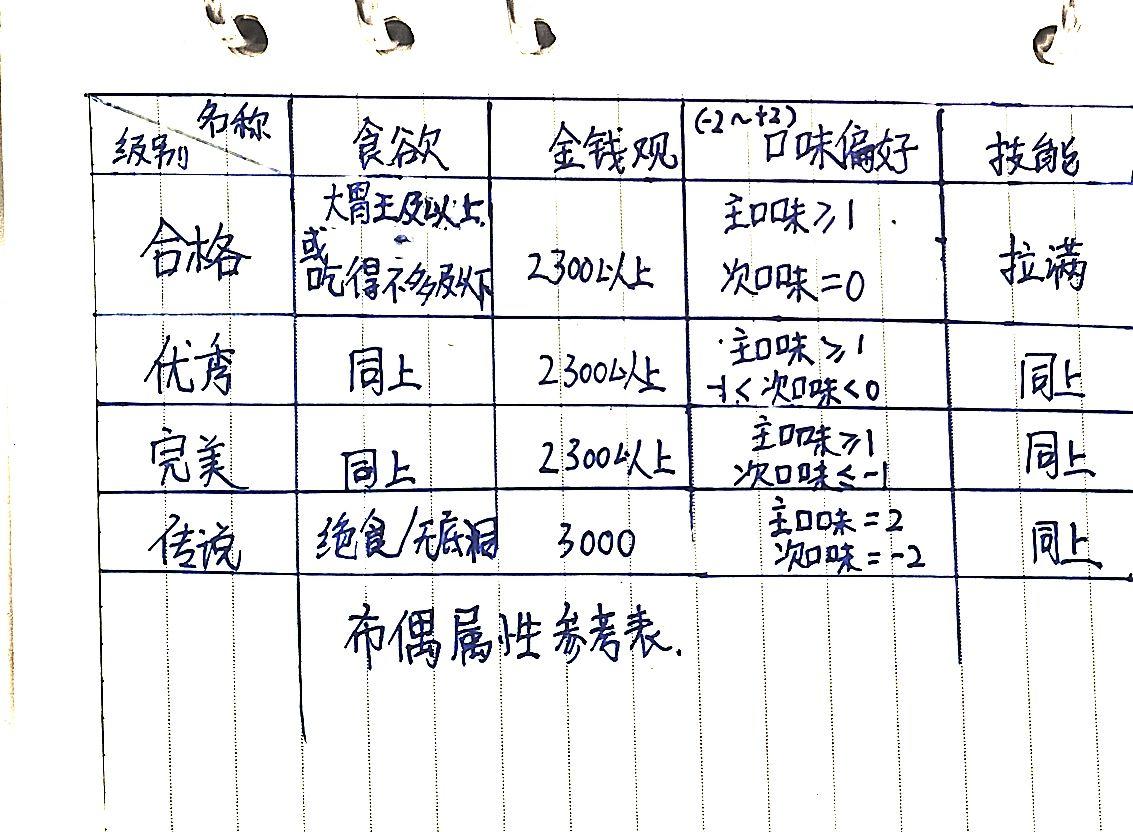 名称
级别
食欲
金钱观
(-2~+2)
口味偏好
技能
合格
大胃王及以上
或
吃得不多及以下
2300以上
主口味≥1
次口味=0
拉满
优秀
同上
2300以上
主口味≥1
-1<次口味<0
同上
完美
同上
2300以上
主口味≥1
次口味≤-1
同上
传说
绝食/无底洞
3000
主口味=2
次口味=-2
同上
布偶属性参考表.